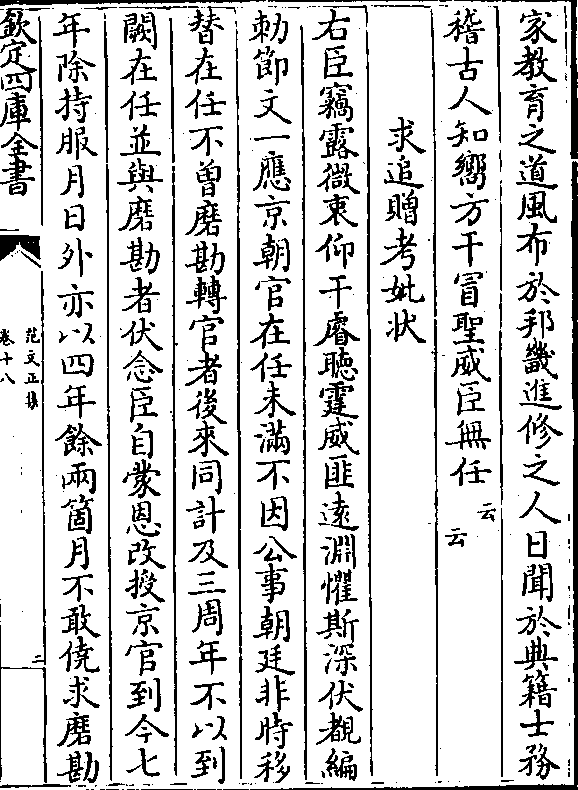 家教育之道風布於邦畿進修之人日聞於典籍士務
稽古人知嚮方干冒聖威臣無任云云
求追贈考妣状
右臣竊露微衷仰干睿聽霆威匪遠淵懼斯深伏覩編
勅節文一應京朝官在任未滿不因公事朝廷非時移
替在任不曽磨勘轉官者後來同計及三周年不以到
闕在任並與磨勘者伏念臣自蒙恩改授京官到今七
年除持服月日外亦以四年餘兩箇月不敢僥求磨勘
欽定四庫全書
范文正集
卷十八
二